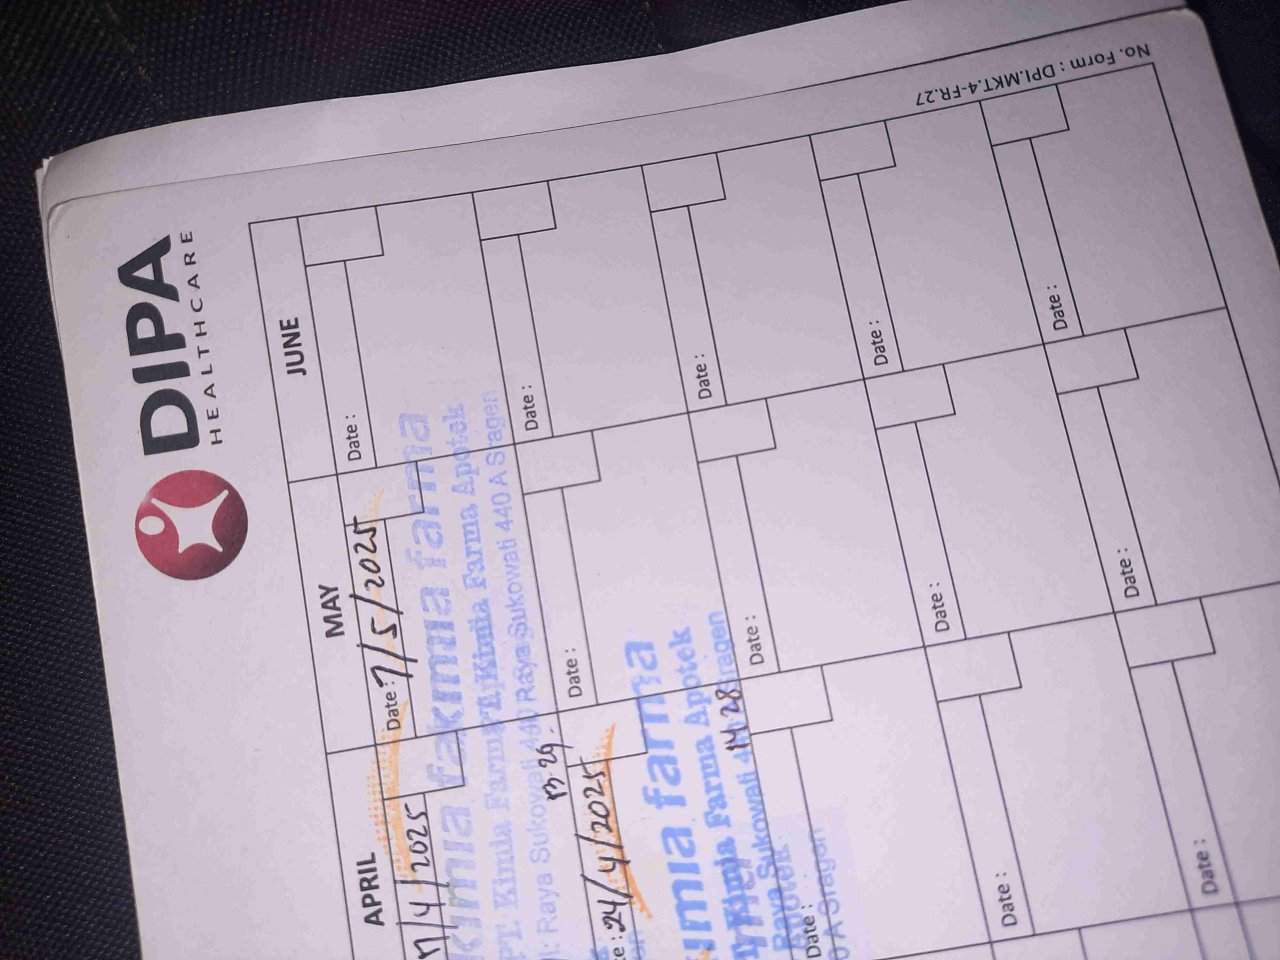 DIPA
HEALTHCARE
No. Form : DPI.MKT.4-FR.27
APRIL
MAY
JUNE
/4/2025
Date : 7/5/2025
Date :
kimia farma
kimia farma
PT. Kimia Farma Apotek
Raya Sukowati 440 A Sragen
13.29.
24/4/2025
Date :
Date :
kimia farma
Kimia Farma Apotek
Raya Sukowati Sragen
14.28
Apotek
A Sragen
Date :
Date :
Date :
Date :
Date :
Date :
Date :
Date :